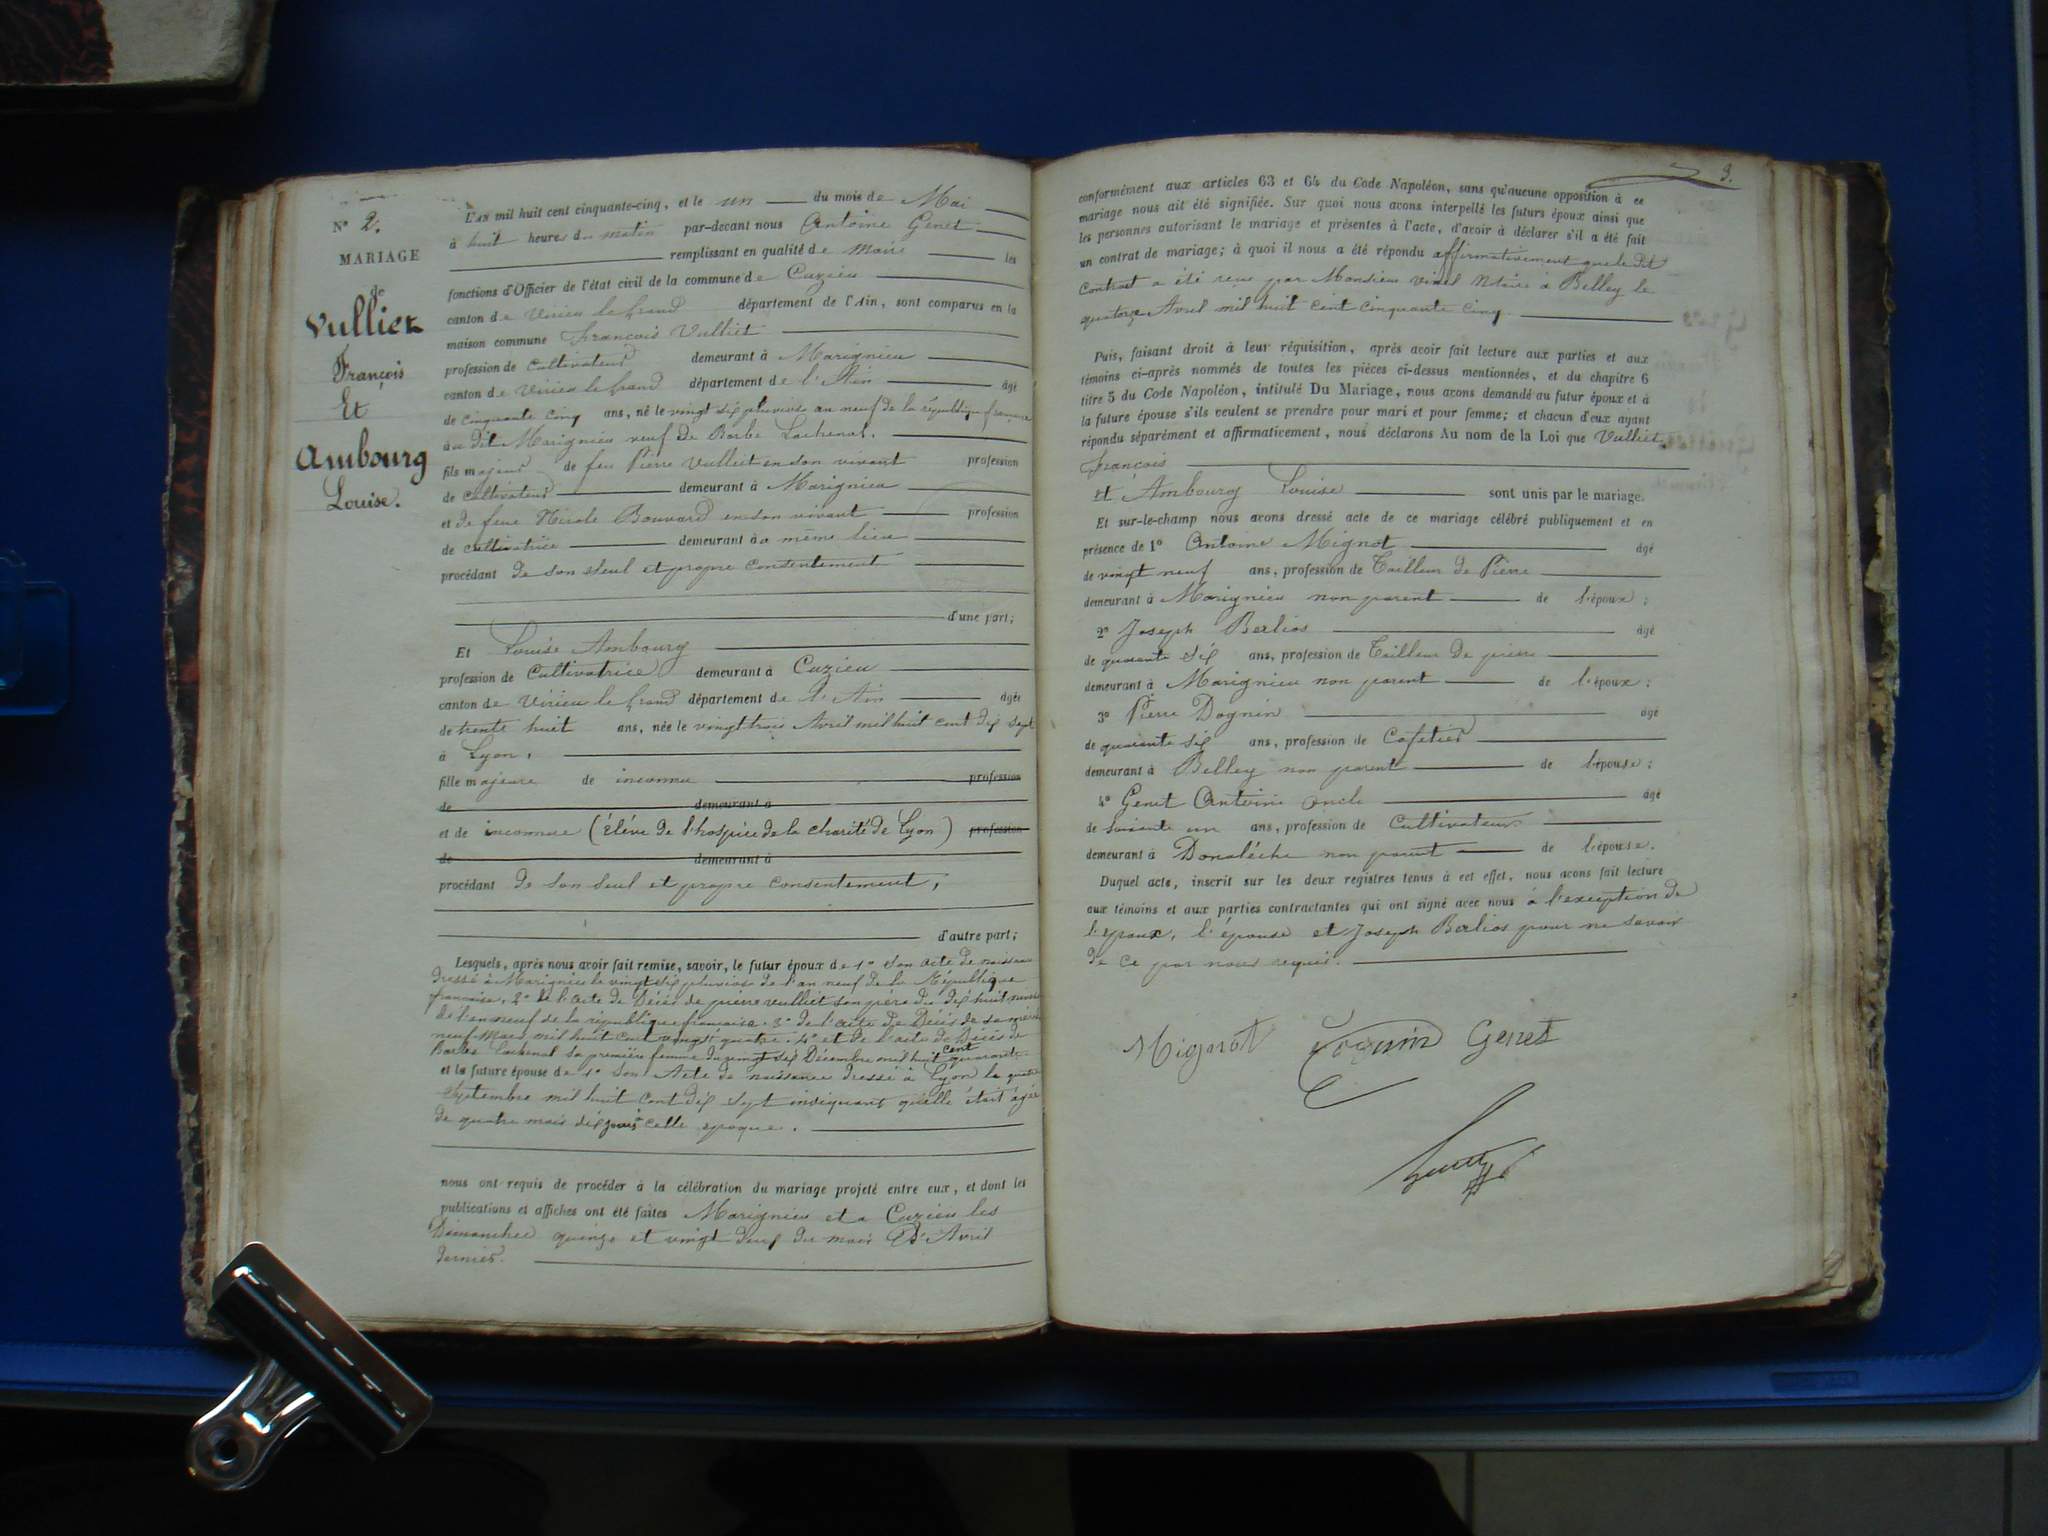 N° 2.
MARIAGE
de
Vulliet
François
Et
Ambourg
Louise.
L'AN mil huit cent cinquante-cinq, et le un du mois de Mai
à huit heures du matin par-devant nous Antoine Genet
remplissant en qualité de Maire les
fonctions d'Officier de l'état civil de la commune de Cuzieu
canton de Virieu le grand département de l'Ain, sont comparus en la
maison commune François Vulliet
profession de Cultivateur demeurant à Marignieu
canton de Virieu le grand département de l'Ain âgé
de cinquante cinq ans, né le vingt six pluviose an neuf de la république francaise
au dit Marignieu veuf de Barbe Lachenal.
fils majeur de feu Pierre Vulliet en son vivant profession
de cultivateur demeurant à Marignieu
et de feue Nicole Bouvard en son vivant profession
de cultivatrice demeurant au même lieu
procédant de son seul et propre consentement
d'une part;
Et Louise Ambourg
profession de Cultivatrice demeurant à Cuzieu
canton de Virieu le grand département de l'Ain âgée
de trente huit ans, née le vingt trois Avril mil huit cent dix sept
à Lyon,
fille majeure de inconnu profession
de demeurant à
et de inconnue (élève de l'hospice de la charité de Lyon) profession
de demeurant à
procédant de son seul et propre consentement;
d'autre part;
Lesquels, après nous avoir fait remise, savoir, le futur époux de 1° son acte de naissance
dressé à Marignieu le vingt six pluviose de l'an neuf de la République
francaise, 2° de l'acte de Décès de pierre vulliet son père du dix huit
de l'an neuf de la république francaise. 3° de l'acte de Décès de sa mère
neuf Mars mil huit cent vingt quatre. 4° et de l'acte de Décès de
Barbe Lachenal sa première femme du vingt six Décembre mil huit cent quarante
et la future épouse de 1° son Acte de naissance dressé à Lyon le quatre
Septembre mil huit cent dix sept indiquant qu'elle était âgée
de quatre mois dix jours à cette époque.
nous ont requis de procéder à la célébration du mariage projeté entre eux, et dont les
publications et affiches ont été faites Marignieu et a Cuzieu les
Dimanches quinze et vingt deux du mois D'Avril
dernier.
3.
conformément aux articles 63 et 64 du Code Napoléon, sans qu'aucune opposition à ce
mariage nous ait été signifiée. Sur quoi nous avons interpellé les futurs époux ainsi que
les personnes autorisant le mariage et présentes à l'acte, d'avoir à déclarer s'il a été fait
un contrat de mariage; à quoi il nous a été répondu affirmativement que le dit
Contrat a été reçu par Monsieur vidal Ntaire à Belley le
quatorze Avril mil huit cent cinquante cinq
Puis, faisant droit à leur réquisition, après avoir fait lecture aux parties et aux
témoins ci-après nommés de toutes les pièces ci-dessus mentionnées, et du chapitre 6
titre 5 du Code Napoléon, intitulé Du Mariage, nous avons demandé au futur époux et à
la future épouse s'ils veulent se prendre pour mari et pour femme; et chacun d'eux ayant
répondu séparément et affirmativement, nous déclarons Au nom de la Loi que Vulliet
François
et Ambourg Louise sont unis par le mariage.
Et sur-le-champ nous avons dressé acte de ce mariage célébré publiquement et en
présence de 1° Antoine Mignot âgé
de vingt neuf ans, profession de Tailleur de Pierre
demeurant à Marignieu non parent de l'époux;
2° Joseph Berlios âgé
de quarante six ans, profession de Tailleur de pierre
demeurant à Marignieu non parent de l'époux;
3° Pierre Dognin âgé
de quarante six ans, profession de Cafetier
demeurant à Belley non parent de l'épouse;
4° Genet Antoine oncle âgé
de soixante un ans, profession de Cultivateur
demeurant à Donalèche non parent de l'épouse.
Duquel acte, inscrit sur les deux registres tenus à cet effet, nous avons fait lecture
aux témoins et aux parties contractantes qui ont signé avec nous à l'exception de
l'époux, l'épouse et Joseph Berlios pour ne savoir
de ce par nous requis.
Mignot Dognin Genet
Genet